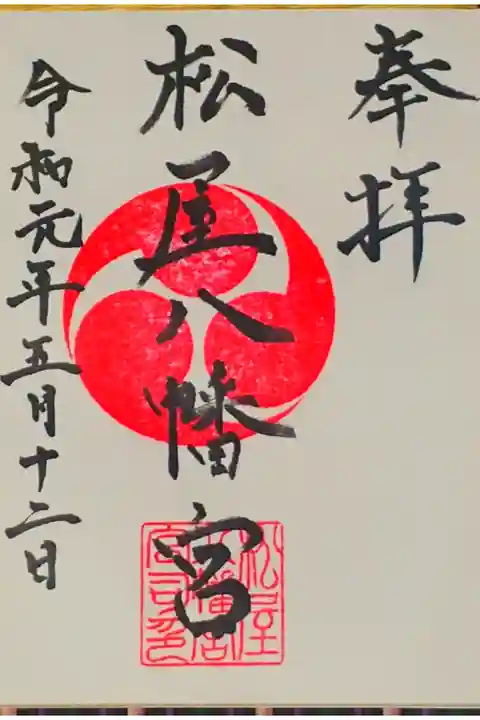 奉拝
松屋八幡宮
令和元年五月十二日
松屋八幡宮宮司之印